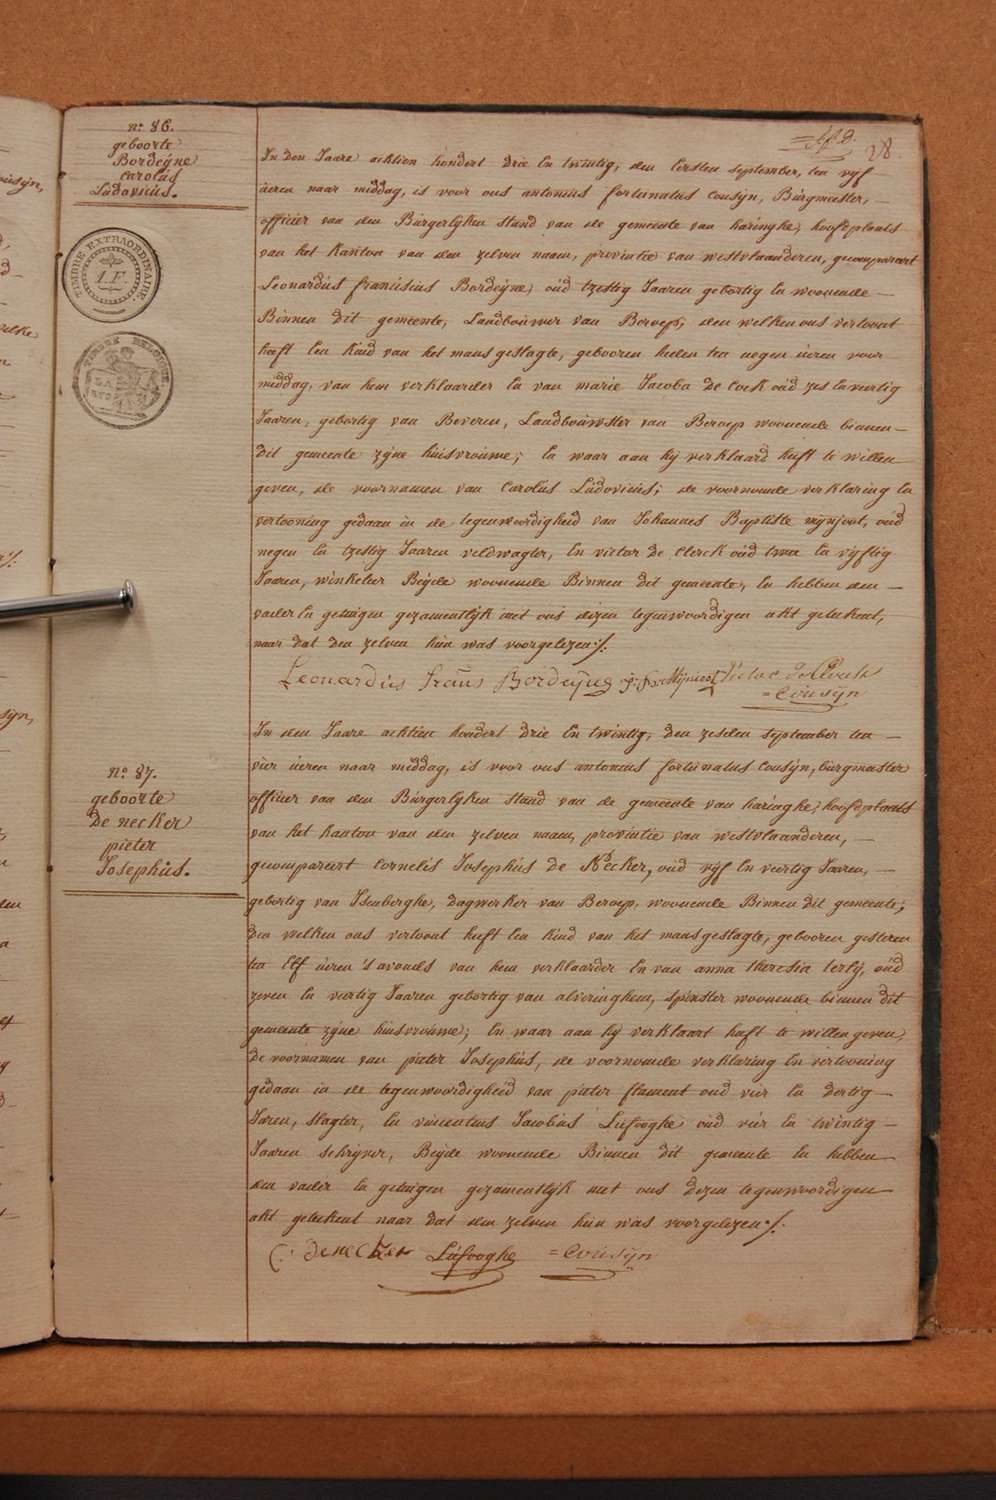 28.
n.° 86.
geboorte
Bordeÿne
Carolus
Ludovicus.
TIMBRE EXTRAORDINAIRE
1.F
TIMBRE BELGIQUE
In den Jaare achtien hondert drie En twintig, den Eersten september, ten vyf
ueren naar middag, is voor ons antonius fortunatus Cousÿn, Burgmeester,
officier van den Burgerlyken stand van de gemeente van haringhe, hoofdplaats
van het Kanton van den zelven naam, provintie van westvlaanderen, gecompareert
Leonardus franciscus Bordeÿne, oud tzestig Jaaren gebortig En woonende
Binnen dit gemeente, Landbouwer van Beroep, den welken ons vertoont
heeft Een Kind van het mansgeslagte, gebooren heden ten negen ueren voor
middag, van hem verklaarder En van marie Jacoba De Cock oud zes En veertig
Jaaren, gebortig van Beveren, Landbouwster van Beroep woonende binnen
dit gemeente zÿne huisvrouwe; En waar aan hÿ verklaard heeft te willen
geven, de voornamen van Carolus Ludovicus; de voornoemde verklaring En
vertooning gedaan in de tegenwoordigheid van Johannes Baptiste mynjoot, oud
negen En tzestig Jaaren veldwagter, En victor de Clerck oud twee En vyftig
Jaaren, winkelier Beÿde woonende Binnen dit gemeente, En hebben den
vader En getuigen gezamentlÿk met ons dezen tegenwoordigen akt geteekent,
naar dat den zelven hun was voorgelezen ./.
Leonardus frans Bordeyne
Cousÿn
n.° 87.
geboorte
De necker
pieter
Josephus.
In den Jaare achtien hondert drie En twintig, den zesden september ten
vier ueren naar middag, is voor ons antonius fortunatus Cousÿn, burgmeester
officier van den Burgerlyken stand van de gemeente van haringhe, hoofdplaats
van het kanton van den zelven naam, provintie van westvlaanderen,
gecompareert Cornelis Josephus de Necker, oud vÿf En veertig Jaaren,
gebortig van Isenberghe, dagwerker van Beroep, woonende Binnen dit gemeente,
den welken ons vertoont heeft Een Kind van het mansgeslagte, gebooren gisteren
ten Elf ueren 's avonds van hem verklaarder En van anna theresia terlÿ, oud
zeven En veertig Jaaren gebortig van alveringhem, spinster woonende binnen dit
gemeente zÿne huisvrouwe; En waar aan hÿ verklaart heeft te willen geven,
de voornamen van pieter Josephus, de voornoemde verklaring En vertooning
gedaan in de tegenwoordigheid van pieter flament oud vier En dertig
Jaren, slagter, En vincentius Jacobus Liefooghe oud vier En twintig
Jaaren schrÿver, Beÿde woonende Binnen dit gemeente En hebben
den vader En getuigen gezamentlÿk met ons dezen tegenwoordigen
akt geteekent naar dat den zelven hun was voorgelezen ./.
C: denecker Liefooghe Cousÿn